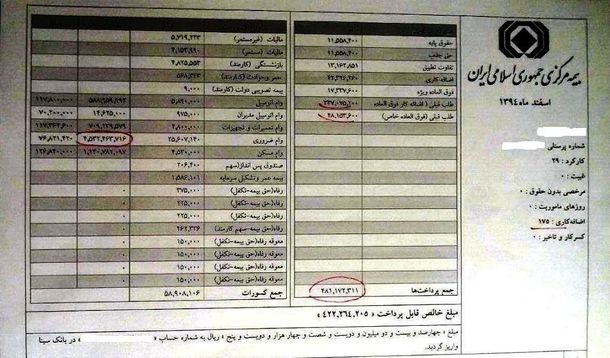 بیمه مرکزی جمهوری اسلامی ایران
اسفند ماه ۱۳۹۴
شماره پرسنلی
کارکرد : ۲۹
غیبت : ۰
مرخصی بدون حقوق : ۰
روزهای ماموریت : ۰
اضافه‌کاری : ۱۷۵
کسرکار و تاخیر : ۰
حقوق پایه ۱۱,۵۵۸,۴۰۰
حق جذب ۱۱,۵۵۸,۴۰۰
تفاوت تطبیق ۱۳,۱۶۲,۸۵۱
اضافه‌کاری
فوق العاده ویژه ۱۷,۳۳۷,۶۰۰
طلب قبلی (اضافه کار فوق العاده
طلب قبلی (فوق العاده خاص) ۲۸,۱۵۳,۶۰۰
جمع پرداخت‌ها ۴۸۱,۱۷۲,۳۱۱
مالیات (غیرمستمر) ۵,۷۱۹,۲۳۳
مالیات (مستمر) ۴,۱۵۳,۹۹۰
بازنشستگی (کارمند) ۴,۸۲۵,۵۵۳
عمر وحوادث (کارمند) ۵۶۸,۳۶۳
بیمه تصریبی دولت (کارمند) ۹,۰۰۰
وام اتومبیل ۵,۸۹۰,۰۰۰ ۵۸۸,۹۵۹,۴۹۲ ۱۱۷,۸۰۰,۰۰۰
وام اتومبیل مدیران ۹۷۵,۰۰۰ ۱۴,۶۲۵,۰۰۰ ۷۰,۲۰۰,۰۰۰
وام تعمیرات و تجهیزات ۲,۸۰۰,۰۰۰ ۷۰۹,۲۳۹,۵۷۹
وام ضروری ۲۵,۶۰۷,۱۴۰ ۴,۵۳۲,۴۶۳,۷۱۶ ۷۶,۸۲۱,۴۲۰
وام مسکن ۴,۵۳۰,۰۰۰ ۱,۱۲۰,۷۸۲,۰۹۷ ۱۲۶,۸۴۰,۰۰۰
صندوق پس انداز(سهم ۲۰۶,۴۰۰
بیمه عمر وتشکیل سرمایه ۱,۵۸۶,۱۰۱
رفاه(حق بیمه-تکفل) ۳۷۵,۰۰۰
رفاه(حق بیمه-تکفل) ۲۲۵,۰۰۰
رفاه(حق بیمه-تکفل) ۲۲۵,۰۰۰
رفاه(حق بیمه-سهم کارمند) ۲۶۲,۳۲۶
معوقه رفاه(حق بیمه-تکفل) ۱۵۰,۰۰۰
معوقه رفاه(حق بیمه-تکفل) ۱۵۰,۰۰۰
معوقه رفاه(حق بیمه-تکفل) ۱۵۰,۰۰۰
جمع کسورات ۵۸,۹۰۸,۱۰۶
مبلغ خالص قابل پرداخت « ۴۲۲,۲۶۴,۲۰۵ »
مبلغ « چهارصد و بیست و دو میلیون و دویست و شصت و چهار هزار و دویست و پنج » ریال به شماره حساب « » در بانک سینا
واریز گردید.